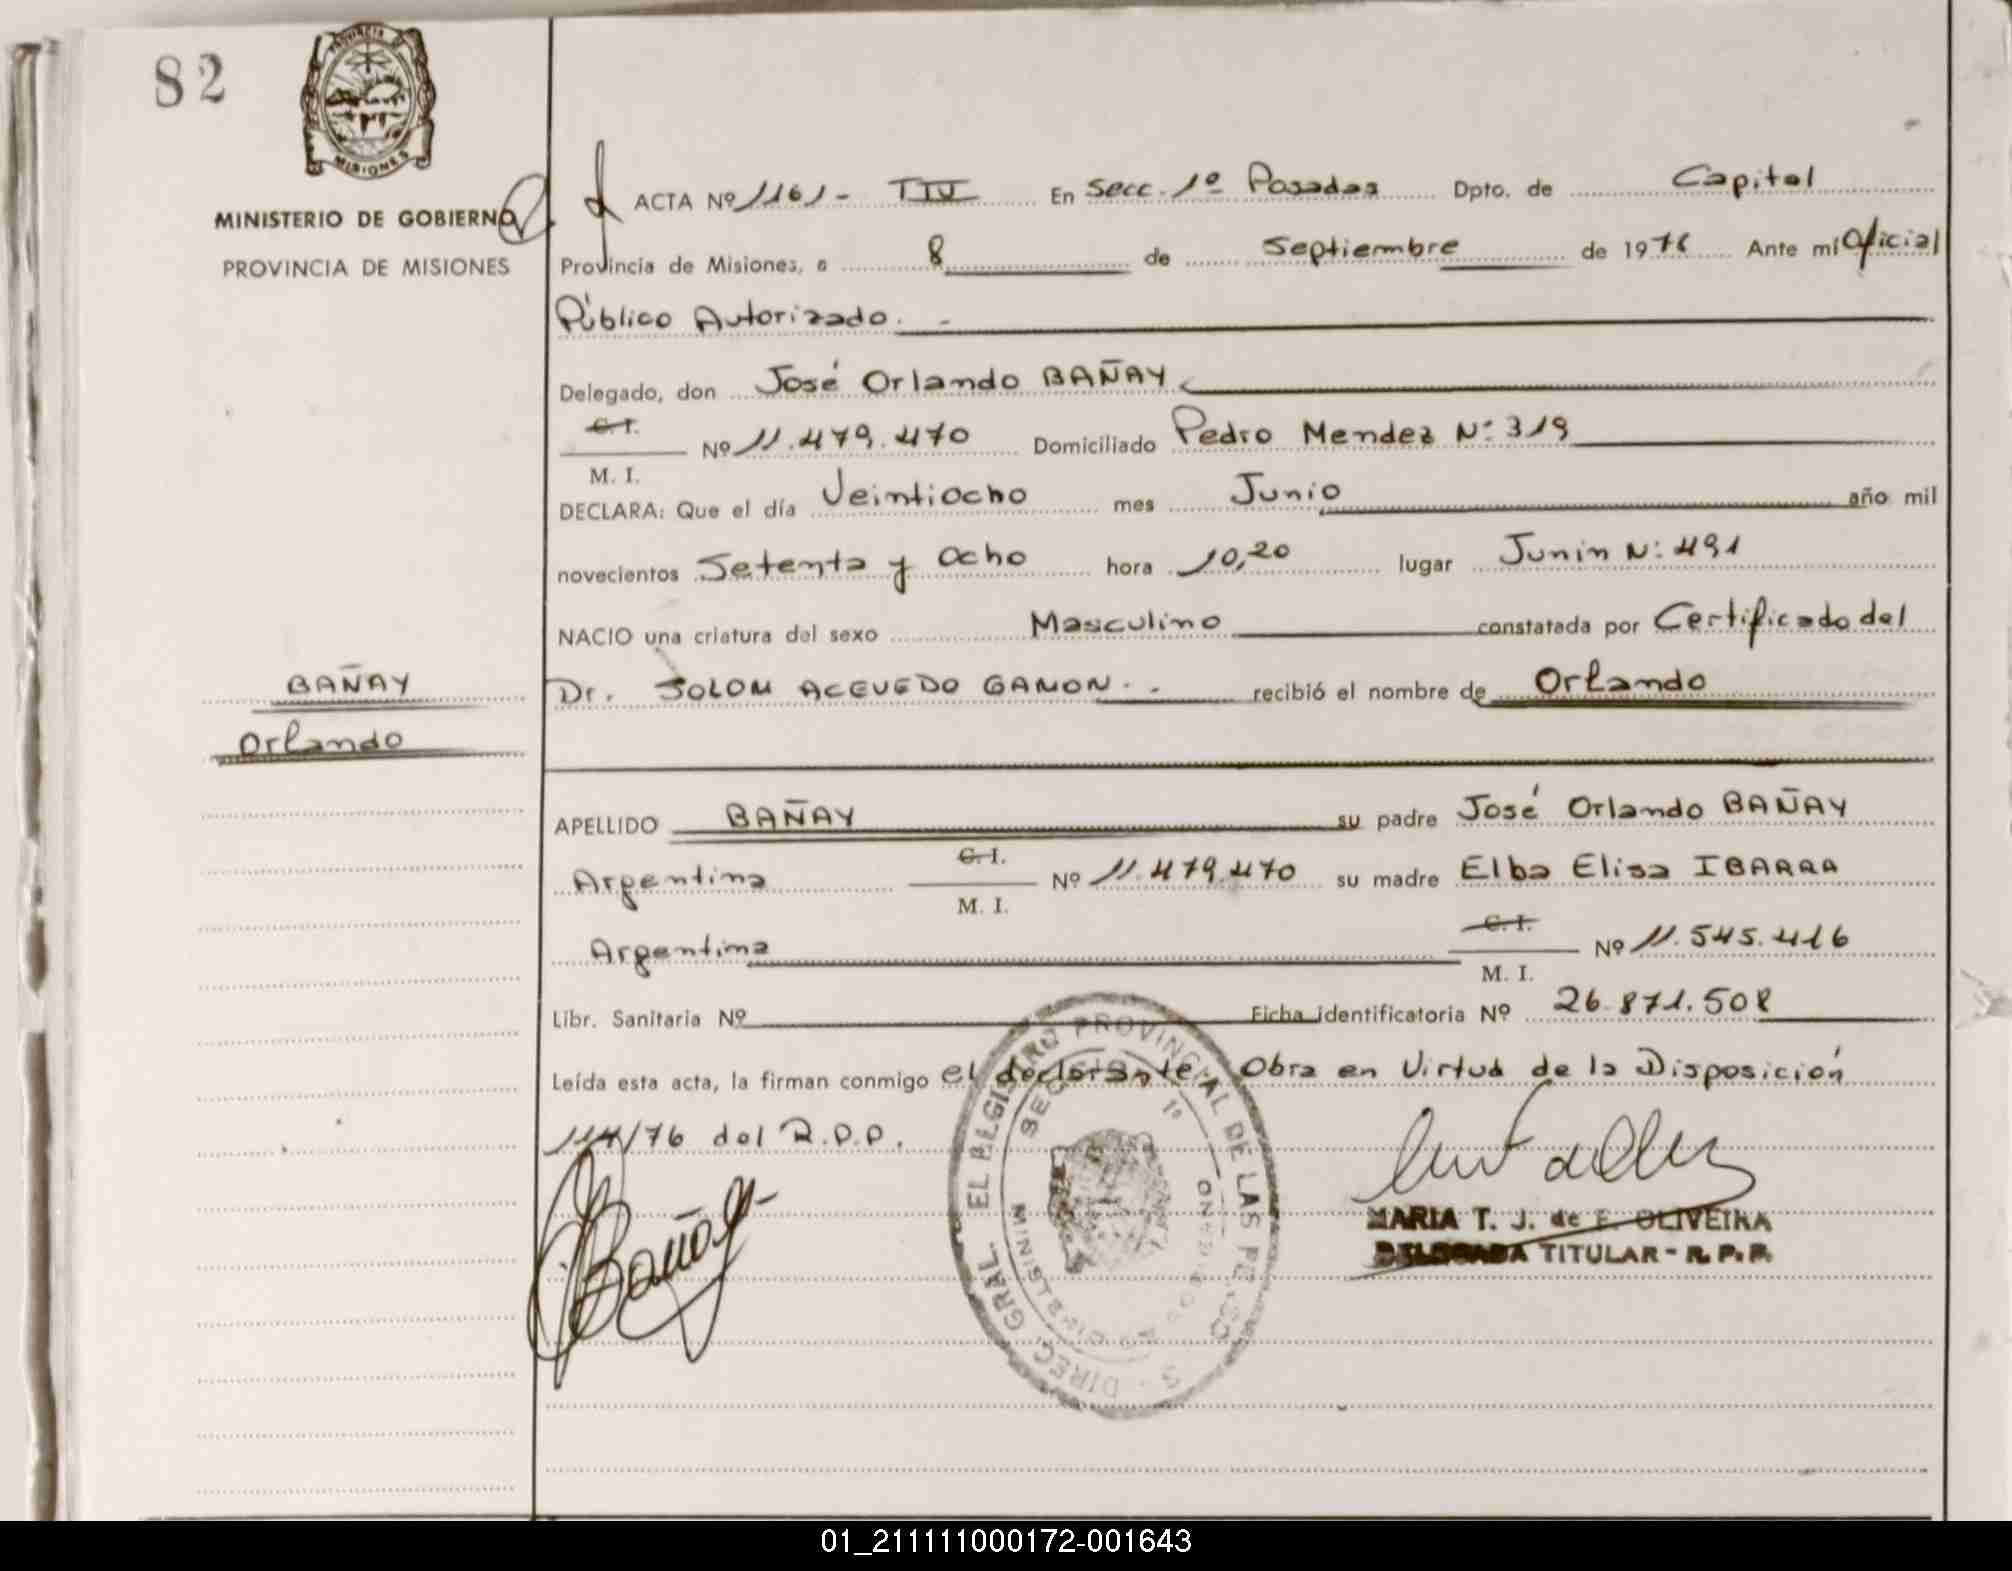 82
PROVINCIA DE
MISIONES
MINISTERIO DE GOBIERNO
PROVINCIA DE MISIONES
ACTA Nº 1161 - TIV En Secc. 1º Posadas Dpto. de Capital
Provincia de Misiones, a 8 de Septiembre de 197 Ante mi Oficial
Público Autorizado. -
Delegado, don José Orlando BAÑAY
C. I.
Nº 11.479.470 Domiciliado Pedro Mendez Nº 319
M. I.
DECLARA: Que el día Veintiocho mes Junio año mil
novecientos Setenta y Ocho hora 10,20 lugar Junin Nº 491
NACIO una criatura del sexo Masculino constatada por Certificado del
Dr. SOLOM ACEVEDO GAMON. - recibió el nombre de Orlando
BAÑAY
Orlando
APELLIDO BAÑAY su padre José Orlando BAÑAY
Argentina C. I. Nº 11.479.470 su madre Elba Elisa IBARRA
M. I.
Argentina C. I. Nº 11.545.416
M. I.
Libr. Sanitaria Nº Ficha identificatoria Nº 26.871.508
Leída esta acta, la firman conmigo el declarante, Obra en Virtud de la Disposición
114/76 del R.P.P.
Bañay
DIREC. GRAL. EL REGISTRO PROVINCIAL DE LAS PERSONAS
SECC 1º
MINISTERIO
MARIA T. J. de F. OLIVEIRA
DELEGADA TITULAR - R. P. P.
01_211111000172-001643